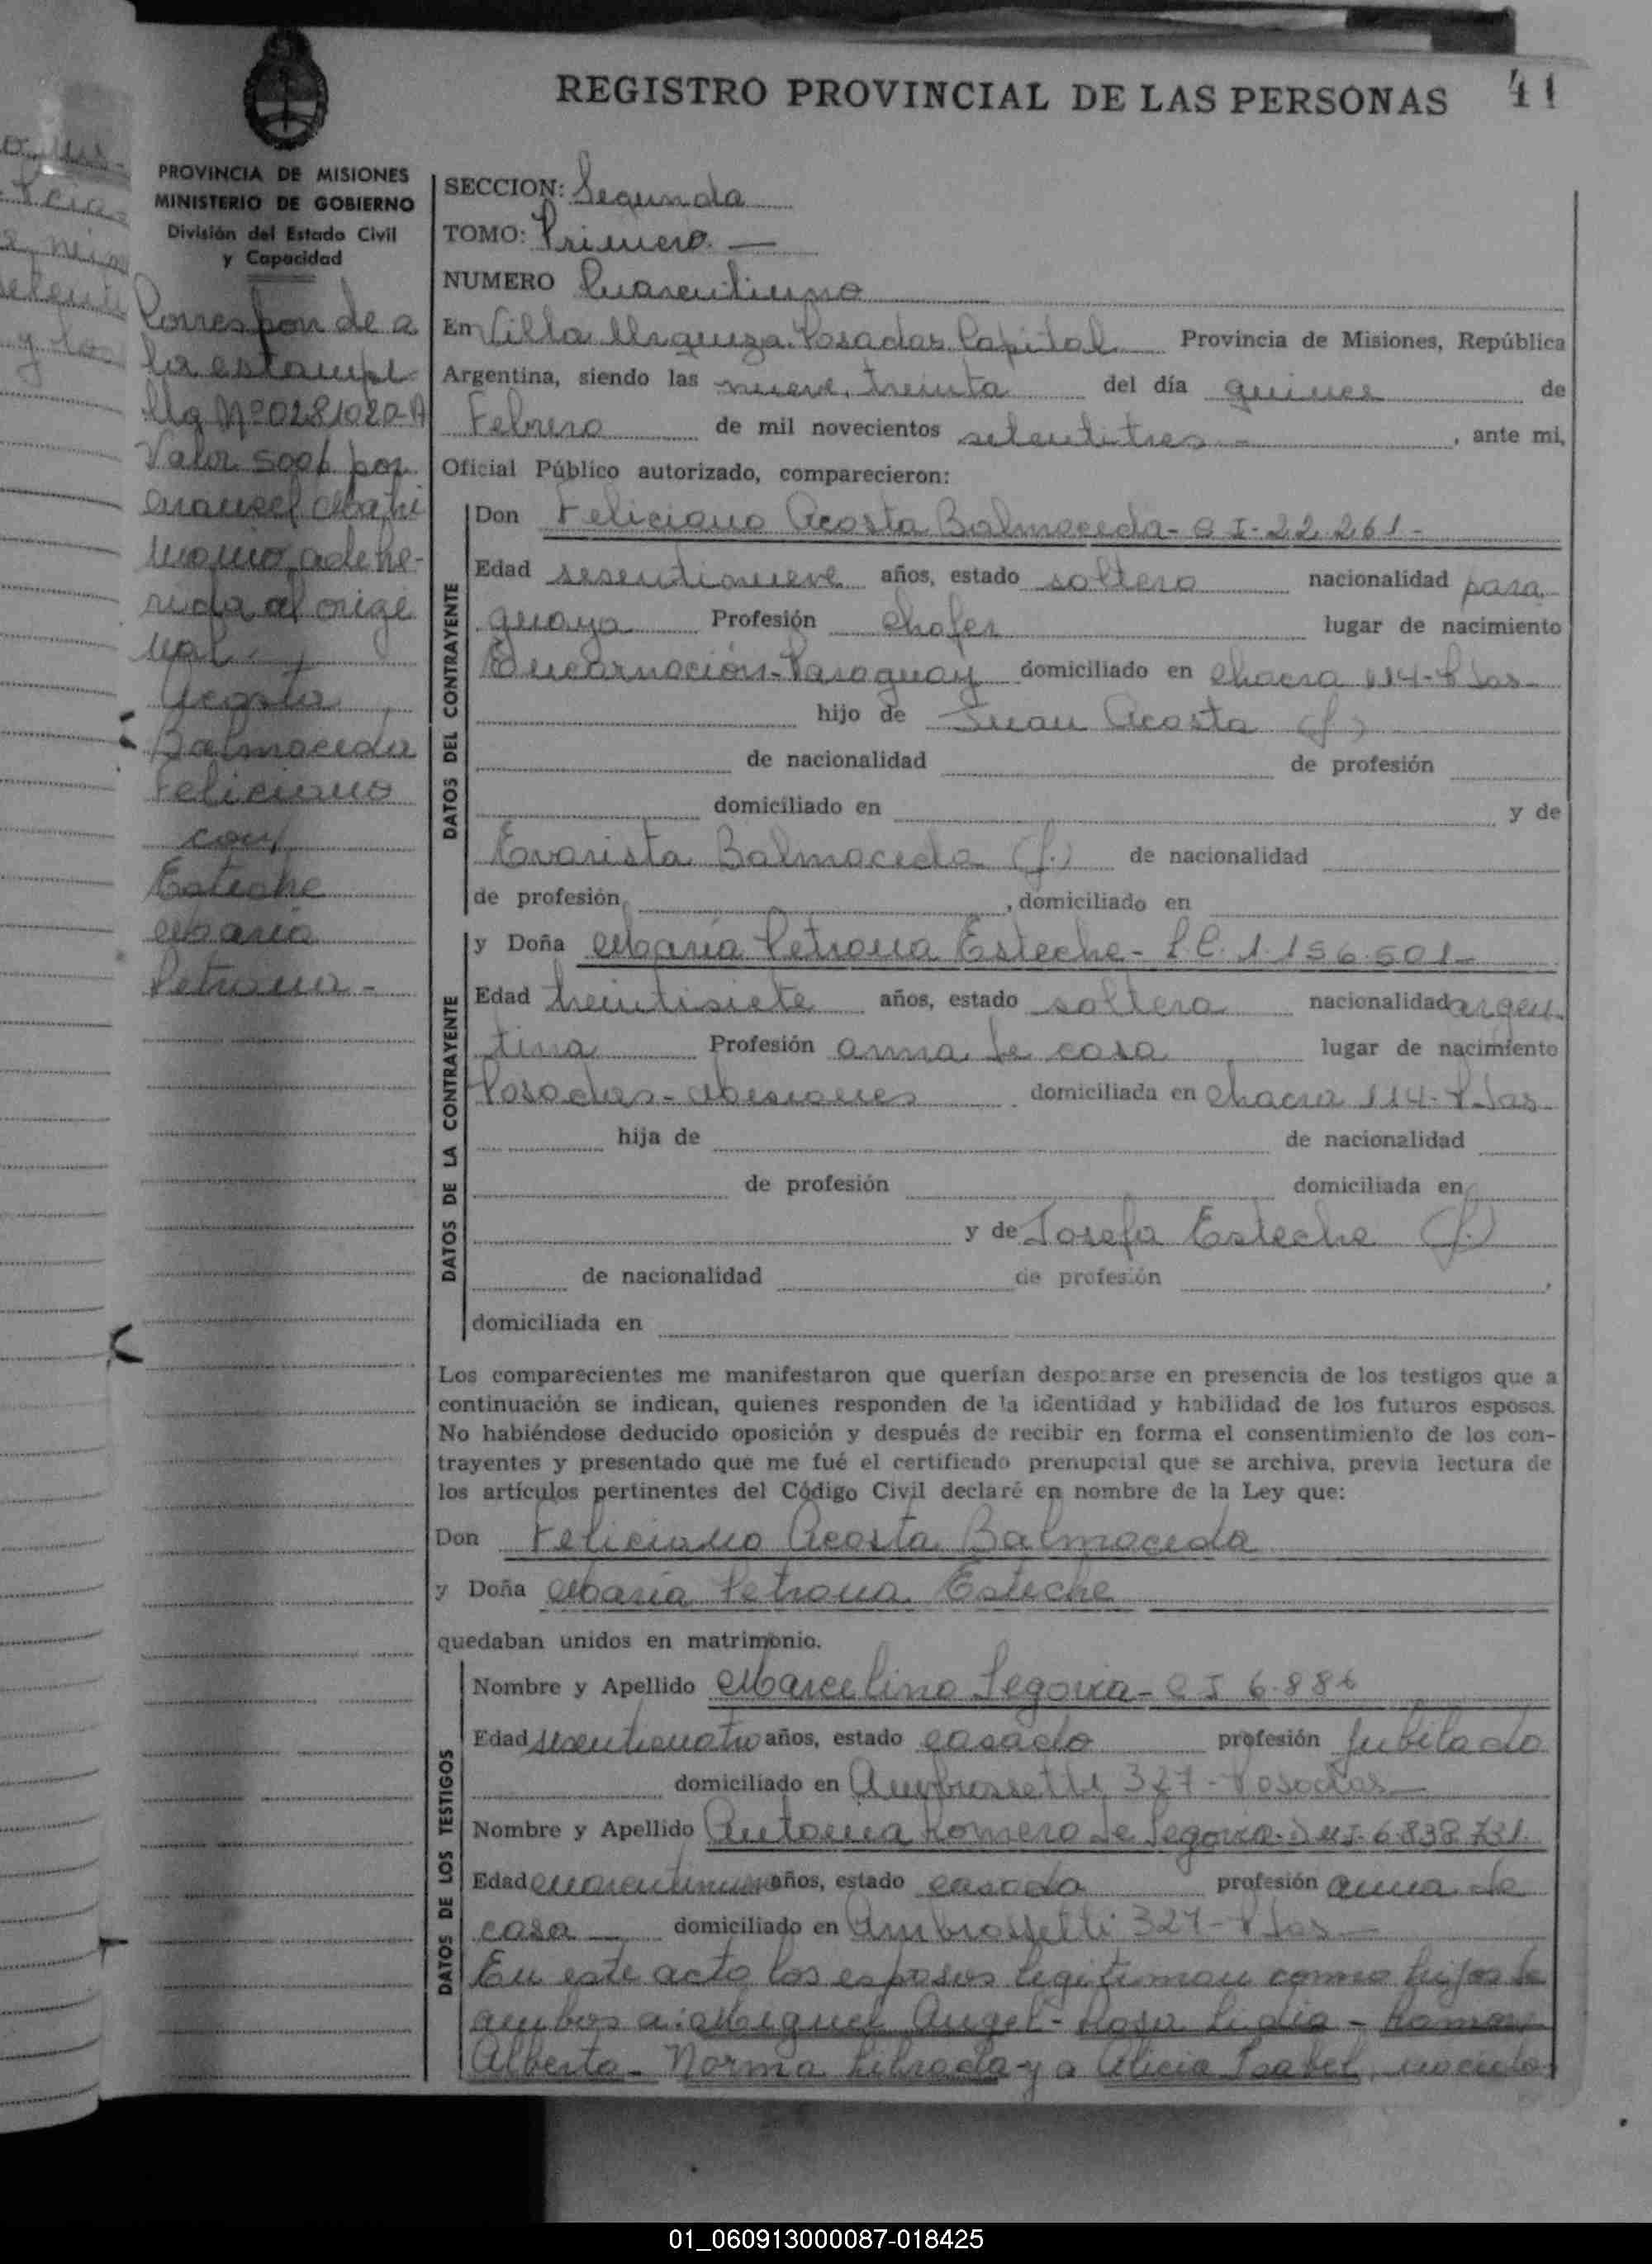 REGISTRO PROVINCIAL DE LAS PERSONAS 41
PROVINCIA DE MISIONES
MINISTERIO DE GOBIERNO
División del Estado Civil
y Capacidad
Corresponde a
la estampi
lla Nº 0281020-A
Valor 500$ por
arancel Matri
monio adehe-
rida al origi
nal.-
Acosta
Balmaceda
Feliciano
con
Esteche
María
Petrona-
SECCION: Segunda
TOMO: Primero.-
NUMERO Cuarentiuno
En Villa Urquiza. Posadas Capital Provincia de Misiones, República
Argentina, siendo las nueve, treinta del día quince de
Febrero de mil novecientos setentitres-, ante mi,
Oficial Público autorizado, comparecieron:
DATOS DEL CONTRAYENTE
Don Feliciano Acosta Balmaceda- C I- 22.261-
Edad sesentinueve años, estado soltero nacionalidad para
guaya Profesión chofer lugar de nacimiento
Encarnación-Paraguay domiciliado en chacra 114-Pdas-
hijo de Juan Acosta (f.)
de nacionalidad de profesión
domiciliado en y de
Evarista Balmaceda (f.) de nacionalidad
de profesión, domiciliado en
DATOS DE LA CONTRAYENTE
y Doña María Petrona Esteche- L.C. 1.156.501-
Edad treintisiete años, estado soltera nacionalidad argen
tina Profesión ama de casa lugar de nacimiento
Posadas-Misiones domiciliada en chacra 114-Pdas-
hija de de nacionalidad
de profesión domiciliada en
y de Josefa Esteche (f.)
de nacionalidad de profesión,
domiciliada en
Los comparecientes me manifestaron que querían desposarse en presencia de los testigos que a
continuación se indican, quienes responden de la identidad y habilidad de los futuros esposos.
No habiéndose deducido oposición y después de recibir en forma el consentimiento de los con-
trayentes y presentado que me fué el certificado prenupcial que se archiva, previa lectura de
los artículos pertinentes del Código Civil declaré en nombre de la Ley que:
Don Feliciano Acosta Balmaceda
y Doña María Petrona Esteche
quedaban unidos en matrimonio.
DATOS DE LOS TESTIGOS
Nombre y Apellido Marcelino Segovia- C I 6.886
Edad sesenticuatro años, estado casado profesión Jubilado
domiciliado en Ambrossetti 327-Posadas-
Nombre y Apellido Antonia Romero de Segovia. D N I. 6.838.731.
Edad años, estado casada profesión ama de
casa domiciliado en Ambrossetti 327-Pdas-
En este acto los esposos legitiman como hijos de
ambos a: Miguel Angel- Rosa Lidia - Ramon
Alberto- Norma Librada y a Alicia Isabel, nacidos
01_060913000087-018425